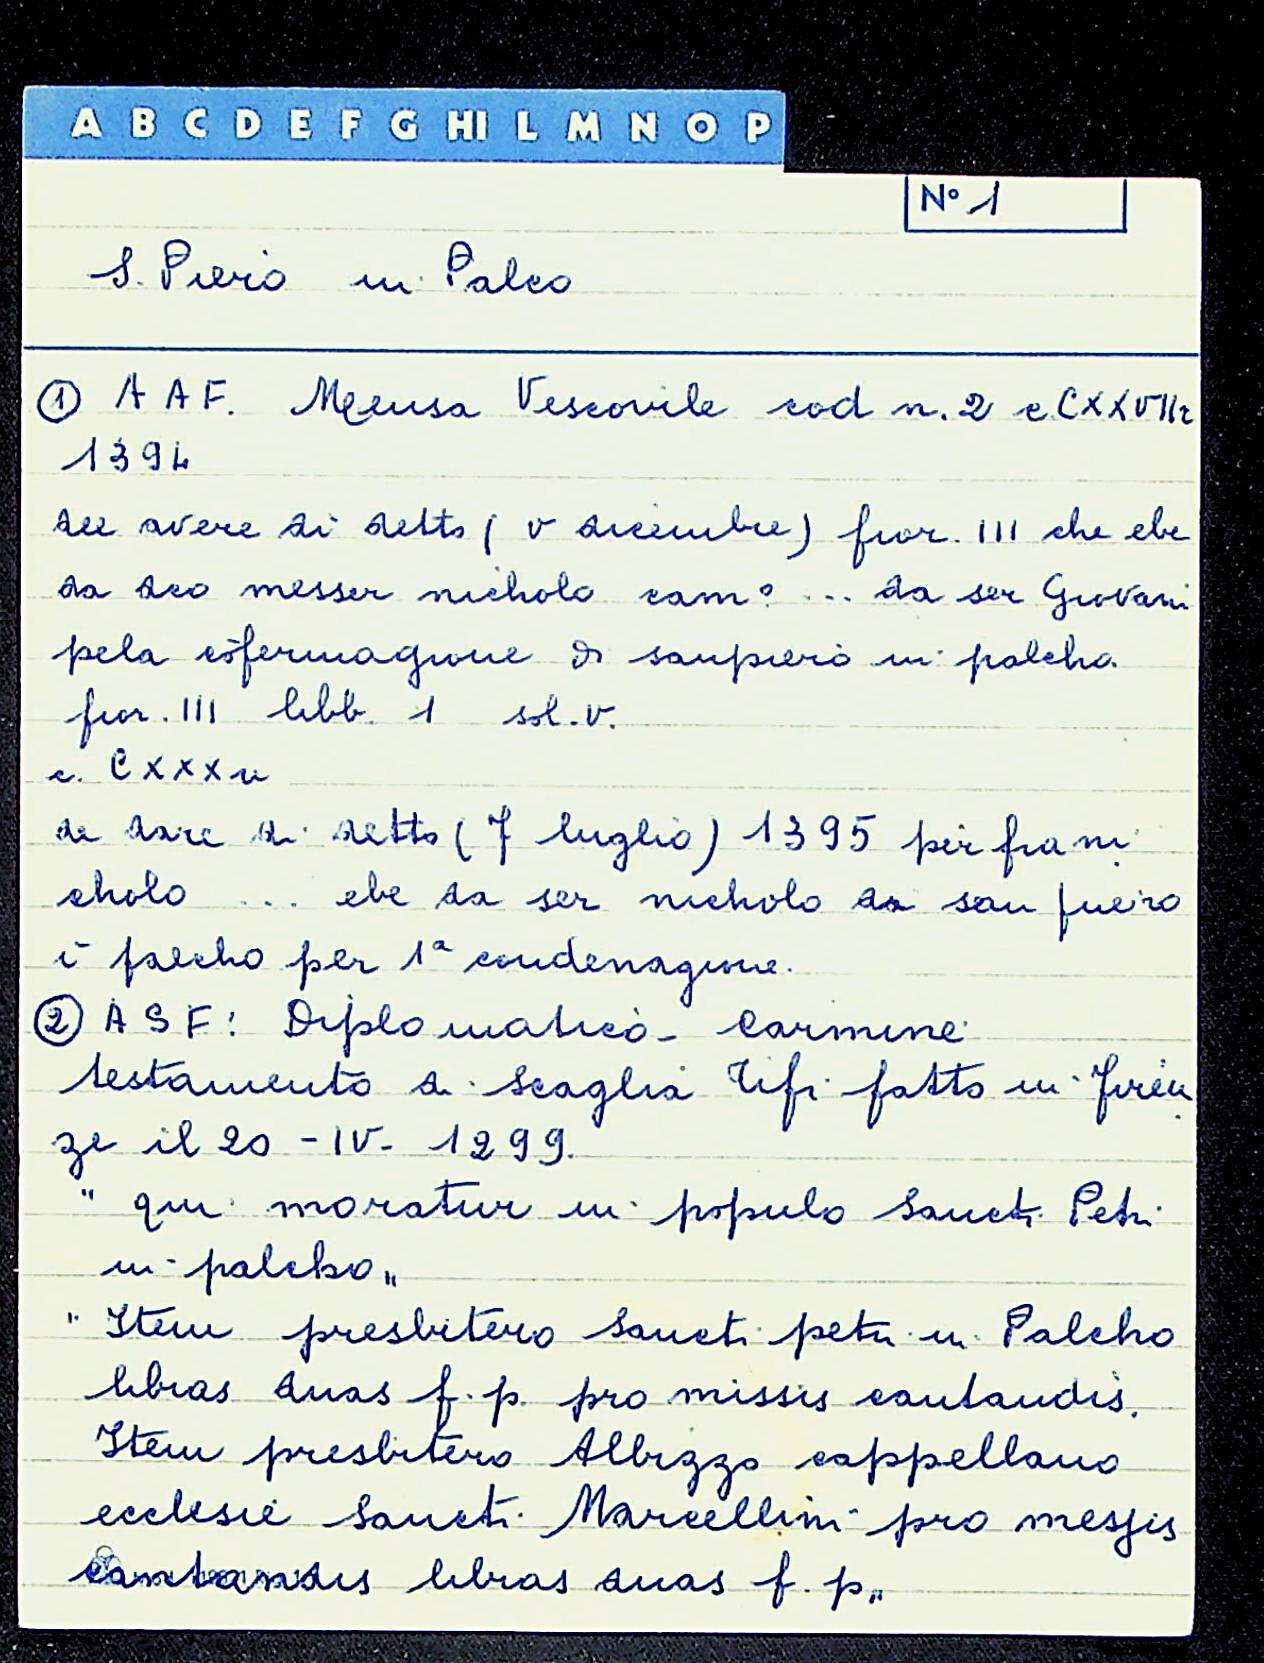 A B C D E F G HI L M N O P
N° 1
S. Piero in Palco
① A A F. Mensa Vescovile cod n. 2 c. CXXVIIr
1394
dee avere di detto ( v dicembre) fior. III che ebe
da dco messer nicholo cam° ... da ser Giovani
pela cōfermagione di sanpiero in palcho.
fior. III libb. 1 sol. v.
c. CXXXv
de dare di detto ( 7 luglio) 1395 per fra ni
cholo ... ebe da ser nicholo da san piero
ī palcho per 1ª condenagione.
② A S F: Diplomatico - Carmine
testamento di Scaglia Tifi fatto in Firen
ze il 20 - IV - 1299.
" qui moratur in populo Sancti Petri
in palcho "
" Item presbitero Sancti petri in Palcho
libras duas f. p. pro missis cantandis.
Item presbitero Albizzo cappellano
ecclesie Sancti Marcellini pro messis
cantandis libras duas f. p "